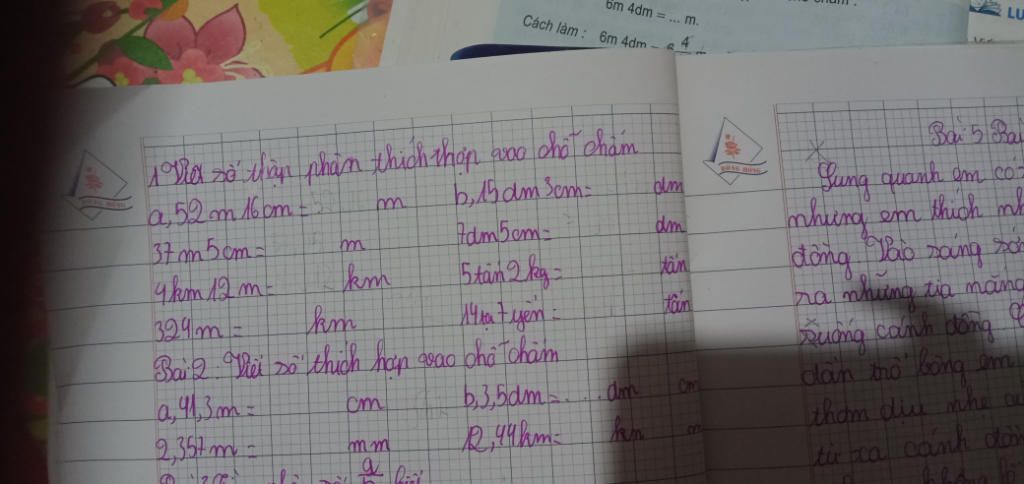 6m 4dm = ... m.
Cách làm : 6m 4dm = 6 4
LU
1 Viết số thập phân thích hợp vao chỗ chấm
a, 52m16cm= m b, 15dm3cm= dm
37m5cm= m 7dm5cm= dm
4km12m= km 5tấn2kg= tấn
324m= km 14tạ7yến= tấn
Bài2: Viết số thích hợp vao chỗ chấm
a, 41,3m= cm b, 3,5dm=.... dm cm
2,357m= mm 12,44km= km m
Bài 5 Bài
Sung quanh em có
nhưng em thích
đồng. Vào sáng
ra những tia
xuống cánh đồng
đàn bông em
thơm dịu nhẹ
từ xa cánh